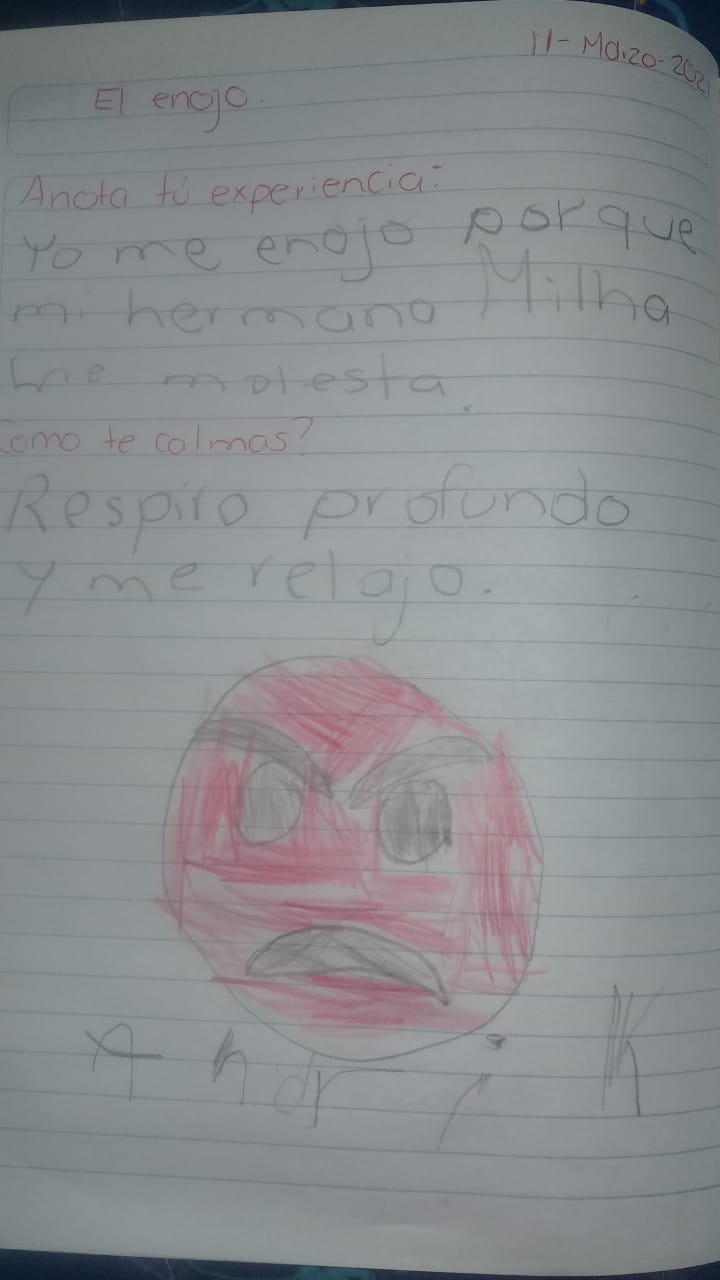 11-Marzo-2021
El enojo.
Anota tú experiencia:
Yo me enojo porque
mi hermano Milha
me molesta.
Como te calmas?
Respiro profundo
y me relajo.